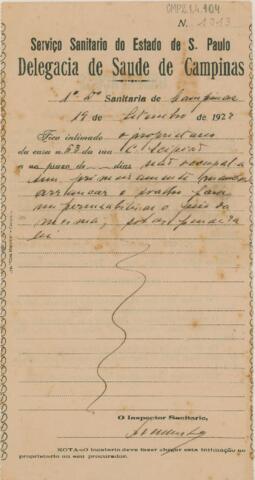 CMP2.1.4.104
N. 1313
Serviço Sanitario do Estado de S. Paulo
Delegacia de Saude de Campinas
1º D.º Sanitaria de Campinas
19 de Setembro de 1922
Fico intimado o proprietario
da casa n. 53 da rua C. Scipião
a no prazo de dias não occupal-a
sem primeiramente mandar
arrancar o para
impermeabilisar o da
mesma, sob as pena da
lei
O Inspector Sanitario,
NOTA—O locatario deve fazer chegar esta intimação ao
proprietario ou seu procurador.